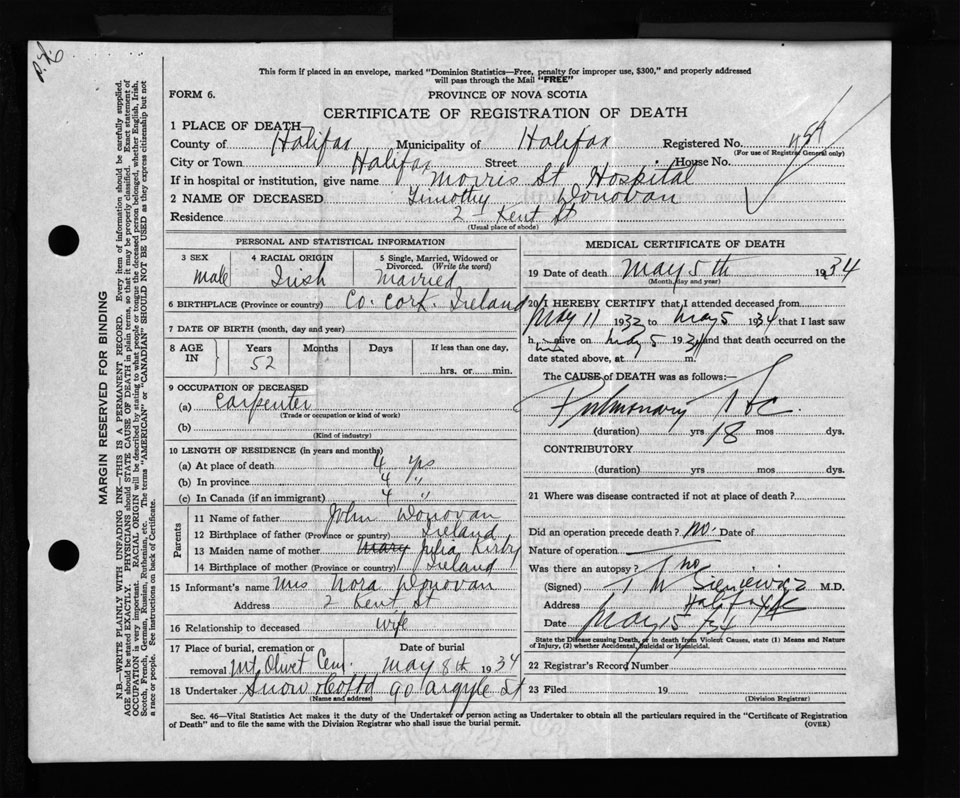 This form if placed in an envelope, marked "Dominion Statistics—Free, penalty for improper use, $300," and properly addressed
will pass through the Mail "FREE"
FORM 6.
PROVINCE OF NOVA SCOTIA
CERTIFICATE OF REGISTRATION OF DEATH
1 PLACE OF DEATH—
County of Halifax Municipality of Halifax Registered No.
(For use of Registrar General only)
City or Town Halifax Street House No.
If in hospital or institution, give name Morris St Hospital
2 NAME OF DECEASED Timothy Donovan
Residence 2 Kent St
(Usual place of abode)
PERSONAL AND STATISTICAL INFORMATION
3 SEX 4 RACIAL ORIGIN 5 Single, Married, Widowed or
Divorced. (Write the word)
Male Irish Married
6 BIRTHPLACE (Province or country) Co. Cork. Ireland
7 DATE OF BIRTH (month, day and year)
8 AGE IN Years Months Days If less than one day,
52 hrs. or min.
9 OCCUPATION OF DECEASED
(a) Carpenter
(Trade or occupation or kind of work)
(b)
(Kind of industry)
10 LENGTH OF RESIDENCE (in years and months)
(a) At place of death 4 yrs
(b) In province 4 "
(c) In Canada (if an immigrant) 4 "
Parents
11 Name of father John Donovan
12 Birthplace of father (Province or country) Ireland
13 Maiden name of mother Mary Julia Kirby
14 Birthplace of mother (Province or country) Ireland
15 Informant's name Mrs Nora Donovan
Address 2 Kent St
16 Relationship to deceased wife
17 Place of burial, cremation or Date of burial
removal Mt Olivet Cem. May 8th 1934
18 Undertaker Snow & Co Ltd 90 Argyle St
(Name and address)
MEDICAL CERTIFICATE OF DEATH
19 Date of death May 5th 1934
(Month, day and year)
20 I HEREBY CERTIFY that I attended deceased from
May 11 1932 to May 5 1934 that I last saw
him alive on May 5 1934 and that death occurred on the
date stated above, at m.
The CAUSE of DEATH was as follows:—
Pulmonary Tbc.
(duration) yrs 18 mos dys.
CONTRIBUTORY
(duration) yrs mos dys.
21 Where was disease contracted if not at place of death?
Did an operation precede death? no. Date of
Nature of operation
Was there an autopsy? no
(Signed) T M Sieniewicz M.D.
Address Halifax
Date May 15/34
State the Disease causing Death, or in death from Violent Causes, state (1) Means and Nature
of Injury, (2) whether Accidental, Suicidal or Homicidal.
22 Registrar's Record Number
23 Filed 19
(Division Registrar)
Sec. 46—Vital Statistics Act makes it the duty of the Undertaker or person acting as Undertaker to obtain all the particulars required in the "Certificate of Registration
of Death" and to file the same with the Division Registrar who shall issue the burial permit. (OVER)
MARGIN RESERVED FOR BINDING
N.B.—WRITE PLAINLY WITH UNFADING INK—THIS IS A PERMANENT RECORD. Every item of information should be carefully supplied.
AGE should be stated EXACTLY. PHYSICIANS should STATE CAUSE OF DEATH in plain terms, so that it may be properly classified. Exact statement of
OCCUPATION is very important. RACIAL ORIGIN will be described by stating to what people or tongue the deceased person belonged, whether English, Irish,
Scotch, French, German, Russian, Ruthenian, etc. The terms "AMERICAN" or "CANADIAN" SHOULD NOT BE USED as they express citizenship but not
a race or people. See instructions on back of Certificate.